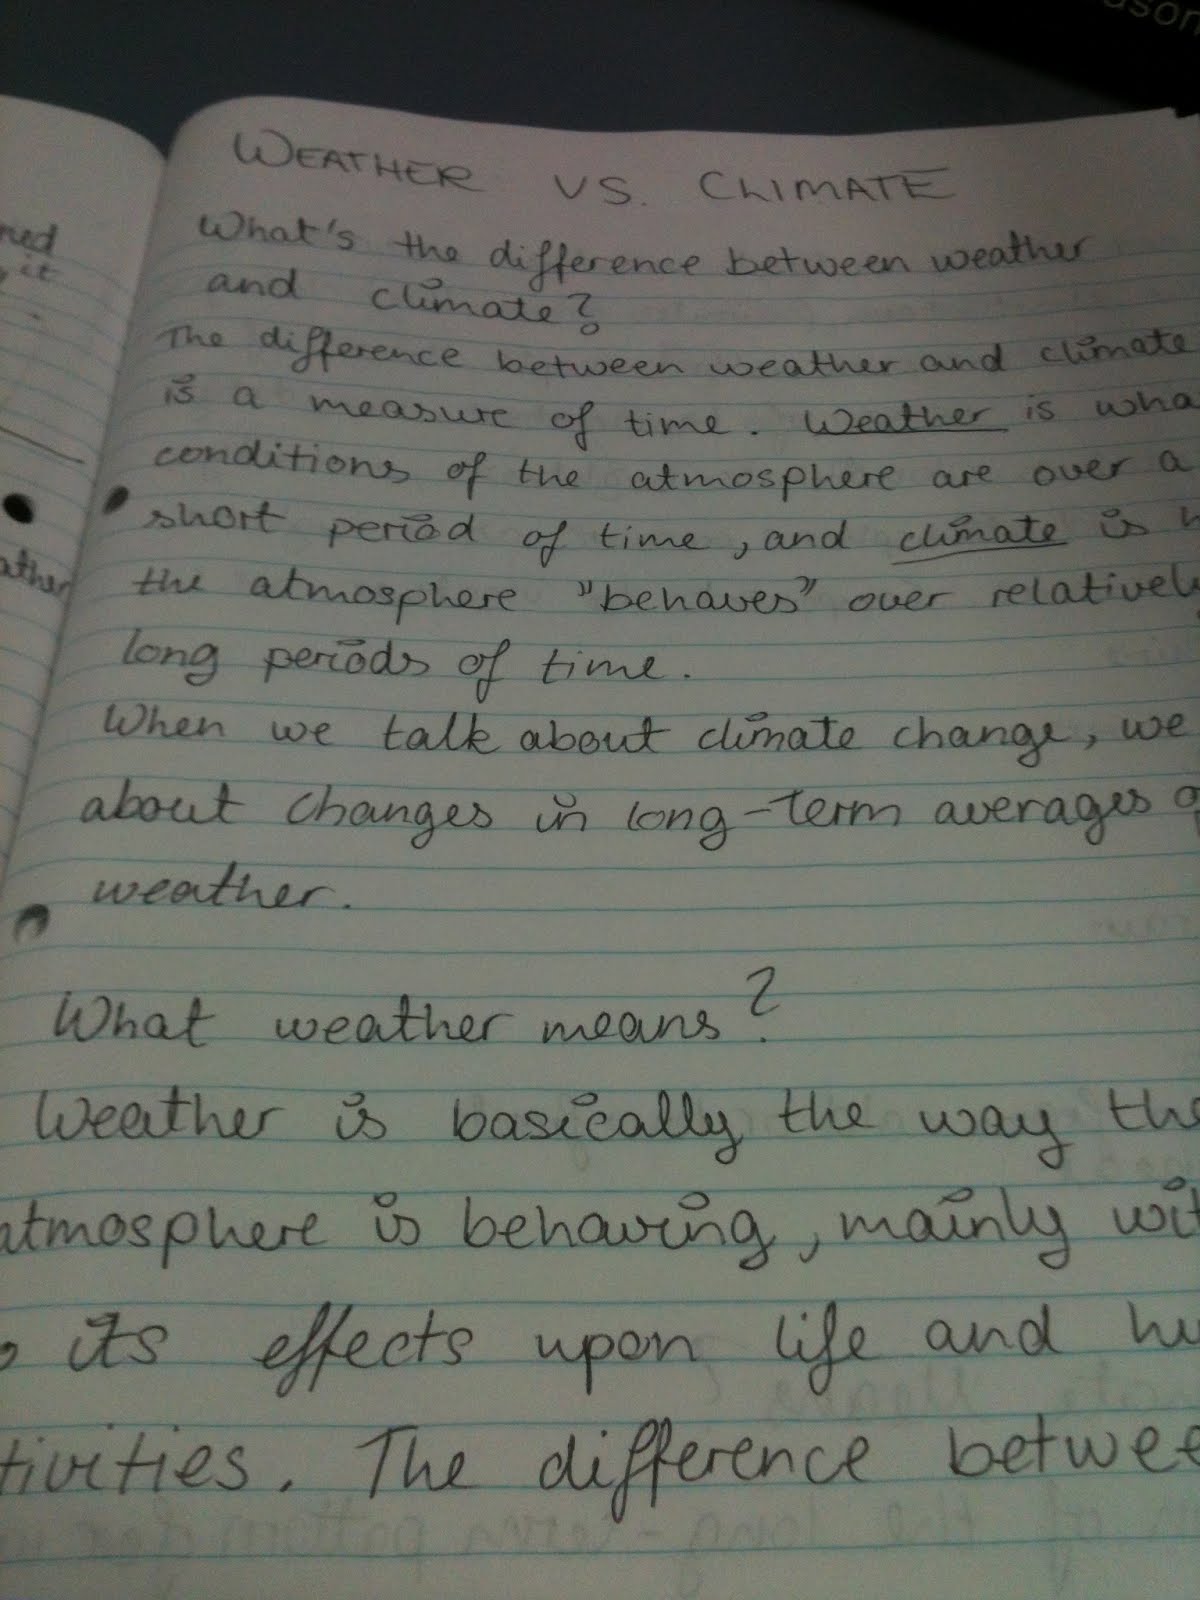 WEATHER VS. CLIMATE
What's the difference between weather
and climate?
The difference between weather and climate
is a measure of time. Weather is wha
conditions of the atmosphere are over a
short period of time, and climate is h
the atmosphere "behaves" over relatively
long periods of time.
When we talk about climate change, we
about changes in long-term averages o
weather.
What weather means?
Weather is basically the way the
atmosphere is behaving, mainly wit
its effects upon life and hu
tivities. The difference betwee
ned
it
ather